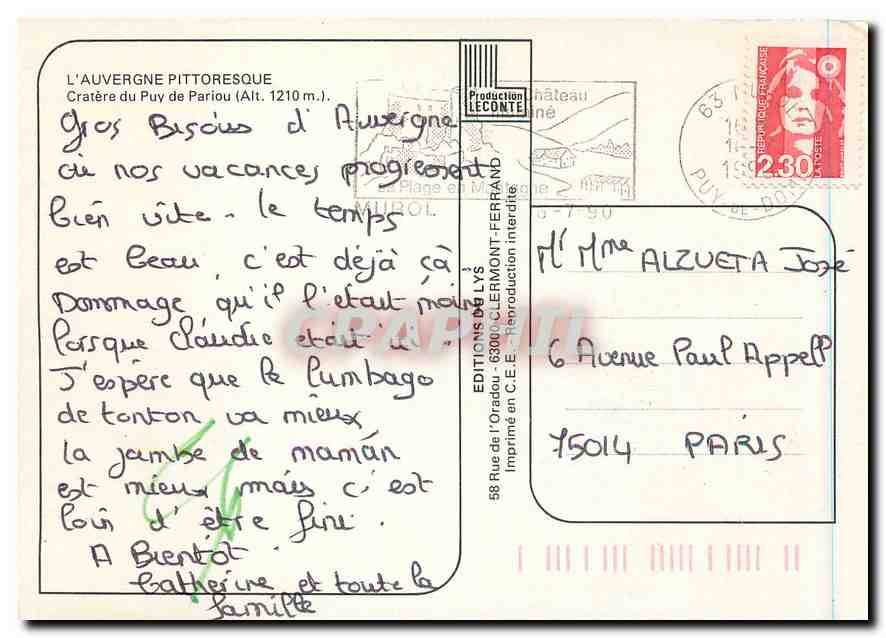 L'AUVERGNE PITTORESQUE
Cratère du Puy de Pariou (Alt. 1210 m.).
Gros Bisous d'Auvergne
où nos vacances progressent
bien vite. le temps
est beau, c'est déjà çà
Dommage qu'il l'était moins
lorsque Claudie était ici.
J'espère que le lumbago
de tonton va mieux
la jambe de maman
est mieux mais c'est
loin d'être fini.
A Bientôt.
Catherine et toute la
famille
Production
LECONTE
EDITIONS DU LYS
58 Rue de l'Oradou - 63000 CLERMONT-FERRAND
Imprimé en C.E.E. - Reproduction interdite
château
La Plage en Montagne
MUROL
6-7-90
63 MUROL
PUY-DE-DOME
RÉPUBLIQUE FRANÇAISE
LA POSTE
2.30
Mr Mme ALZUETA José
6 Avenue Paul Appell
75014 PARIS
CPAPHIL